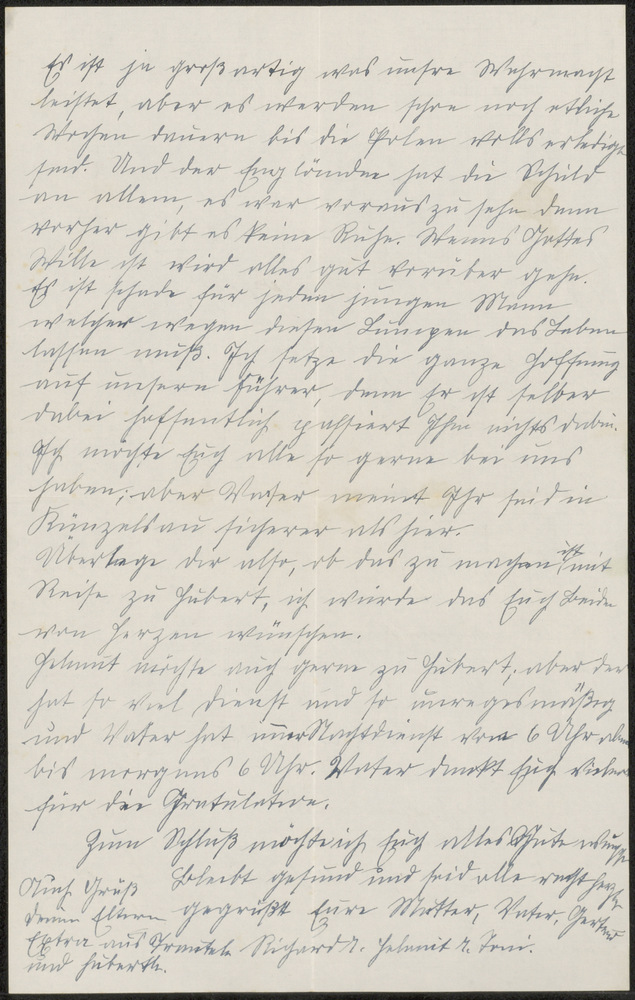 Es ist ja großartig was unsre Wehrmacht
leistet, aber es werden schon noch etliche
Wochen dauern bis die Polen volls erledigt
sind. Und der Engländer hat die Schuld
an allem, es war vorauszusehn denn
vorher gibt es keine Ruhe. Wenns Gottes
Wille ist wird alles gut vorüber gehn.
Es ist schade für jeden jungen Mann
welcher wegen diesen Lumpen das Leben
lassen muß. Ich setze die ganze Hoffnung
auf unsern Führer, denn Er ist selber
dabei hoffentlich passiert Ihm nichts dabei.
Ich möchte Euch alle so gerne bei uns
haben, aber Vater meint Ihr seid in
Künzelsau sicherer als hier.
Überlege dir also, ob das zu machen ist mit
Reise zu Hubert, ich würde das Euch Beiden
von Herzen wünschen.
Helmut möchte auch gerne zu Hubert, aber der
hat so viel Dienst und so unregesmäßig
und Vater hat Nachtdienst von 6 Uhr
bis morgens 6 Uhr. Vater dankt Euch
für die Gratulation.
Zum Schluß möchte ich Euch alles Gute
Bleibt gesund und seid alle recht
gegrüßt Eure Mutter, Vater,
Richard u. Helmut u. Toni.
Auch Grüß
deinen Eltern
Extra aus
und